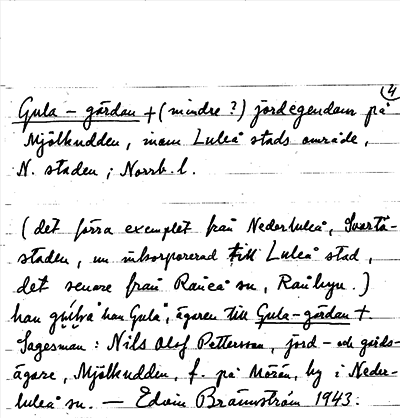 4
Gula-gården + (mindre?) jordegendom på
Mjölkudden, inom Luleå stads område,
N. staden i Norrb. l.
(det förra exemplet från Nederluleå, Svartö-
staden, nu inkorporerad till Luleå stad,
det senare från Råneå sn, Rånbyn.)
han "han Gula", ägaren till Gula-gården +
Sagesman: Nils Olof Pettersson, jord- och gårds-
ägare, Mjölkudden, f. på Mörön, by i Neder-
luleå sn. — Edvin Brännström 1943.